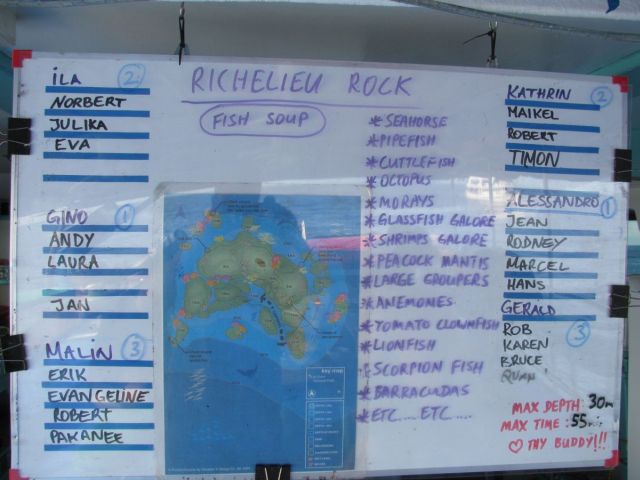 RICHELIEU ROCK
FISH SOUP
ILA 2
NORBERT
JULIKA
EVA
GINO 1
ANDY
LAURA
JAN
MALIN 3
ERIK
EVANGELINE
ROBERT
PAKANEE
* SEAHORSE
* PIPEFISH
* CUTTLEFISH
* OCTOPUS
* MORAYS
* GLASSFISH GALORE
* SHRIMPS GALORE
* PEACOCK MANTIS
* LARGE GROUPERS
* ANEMONES
* TOMATO CLOWNFISH
* LIONFISH
* SCORPION FISH
* BARRACUDAS
* ETC.... ETC.....
KATHRIN 2
MAIKEL
ROBERT
TIMON
ALESSANDRO 1
JEAN
RODNEY
MARCEL
HANS
GERALD
ROB 3
KAREN
BRUCE
MAX DEPTH : 30m
MAX TIME : 55
♡ THY BUDDY!!!
key map